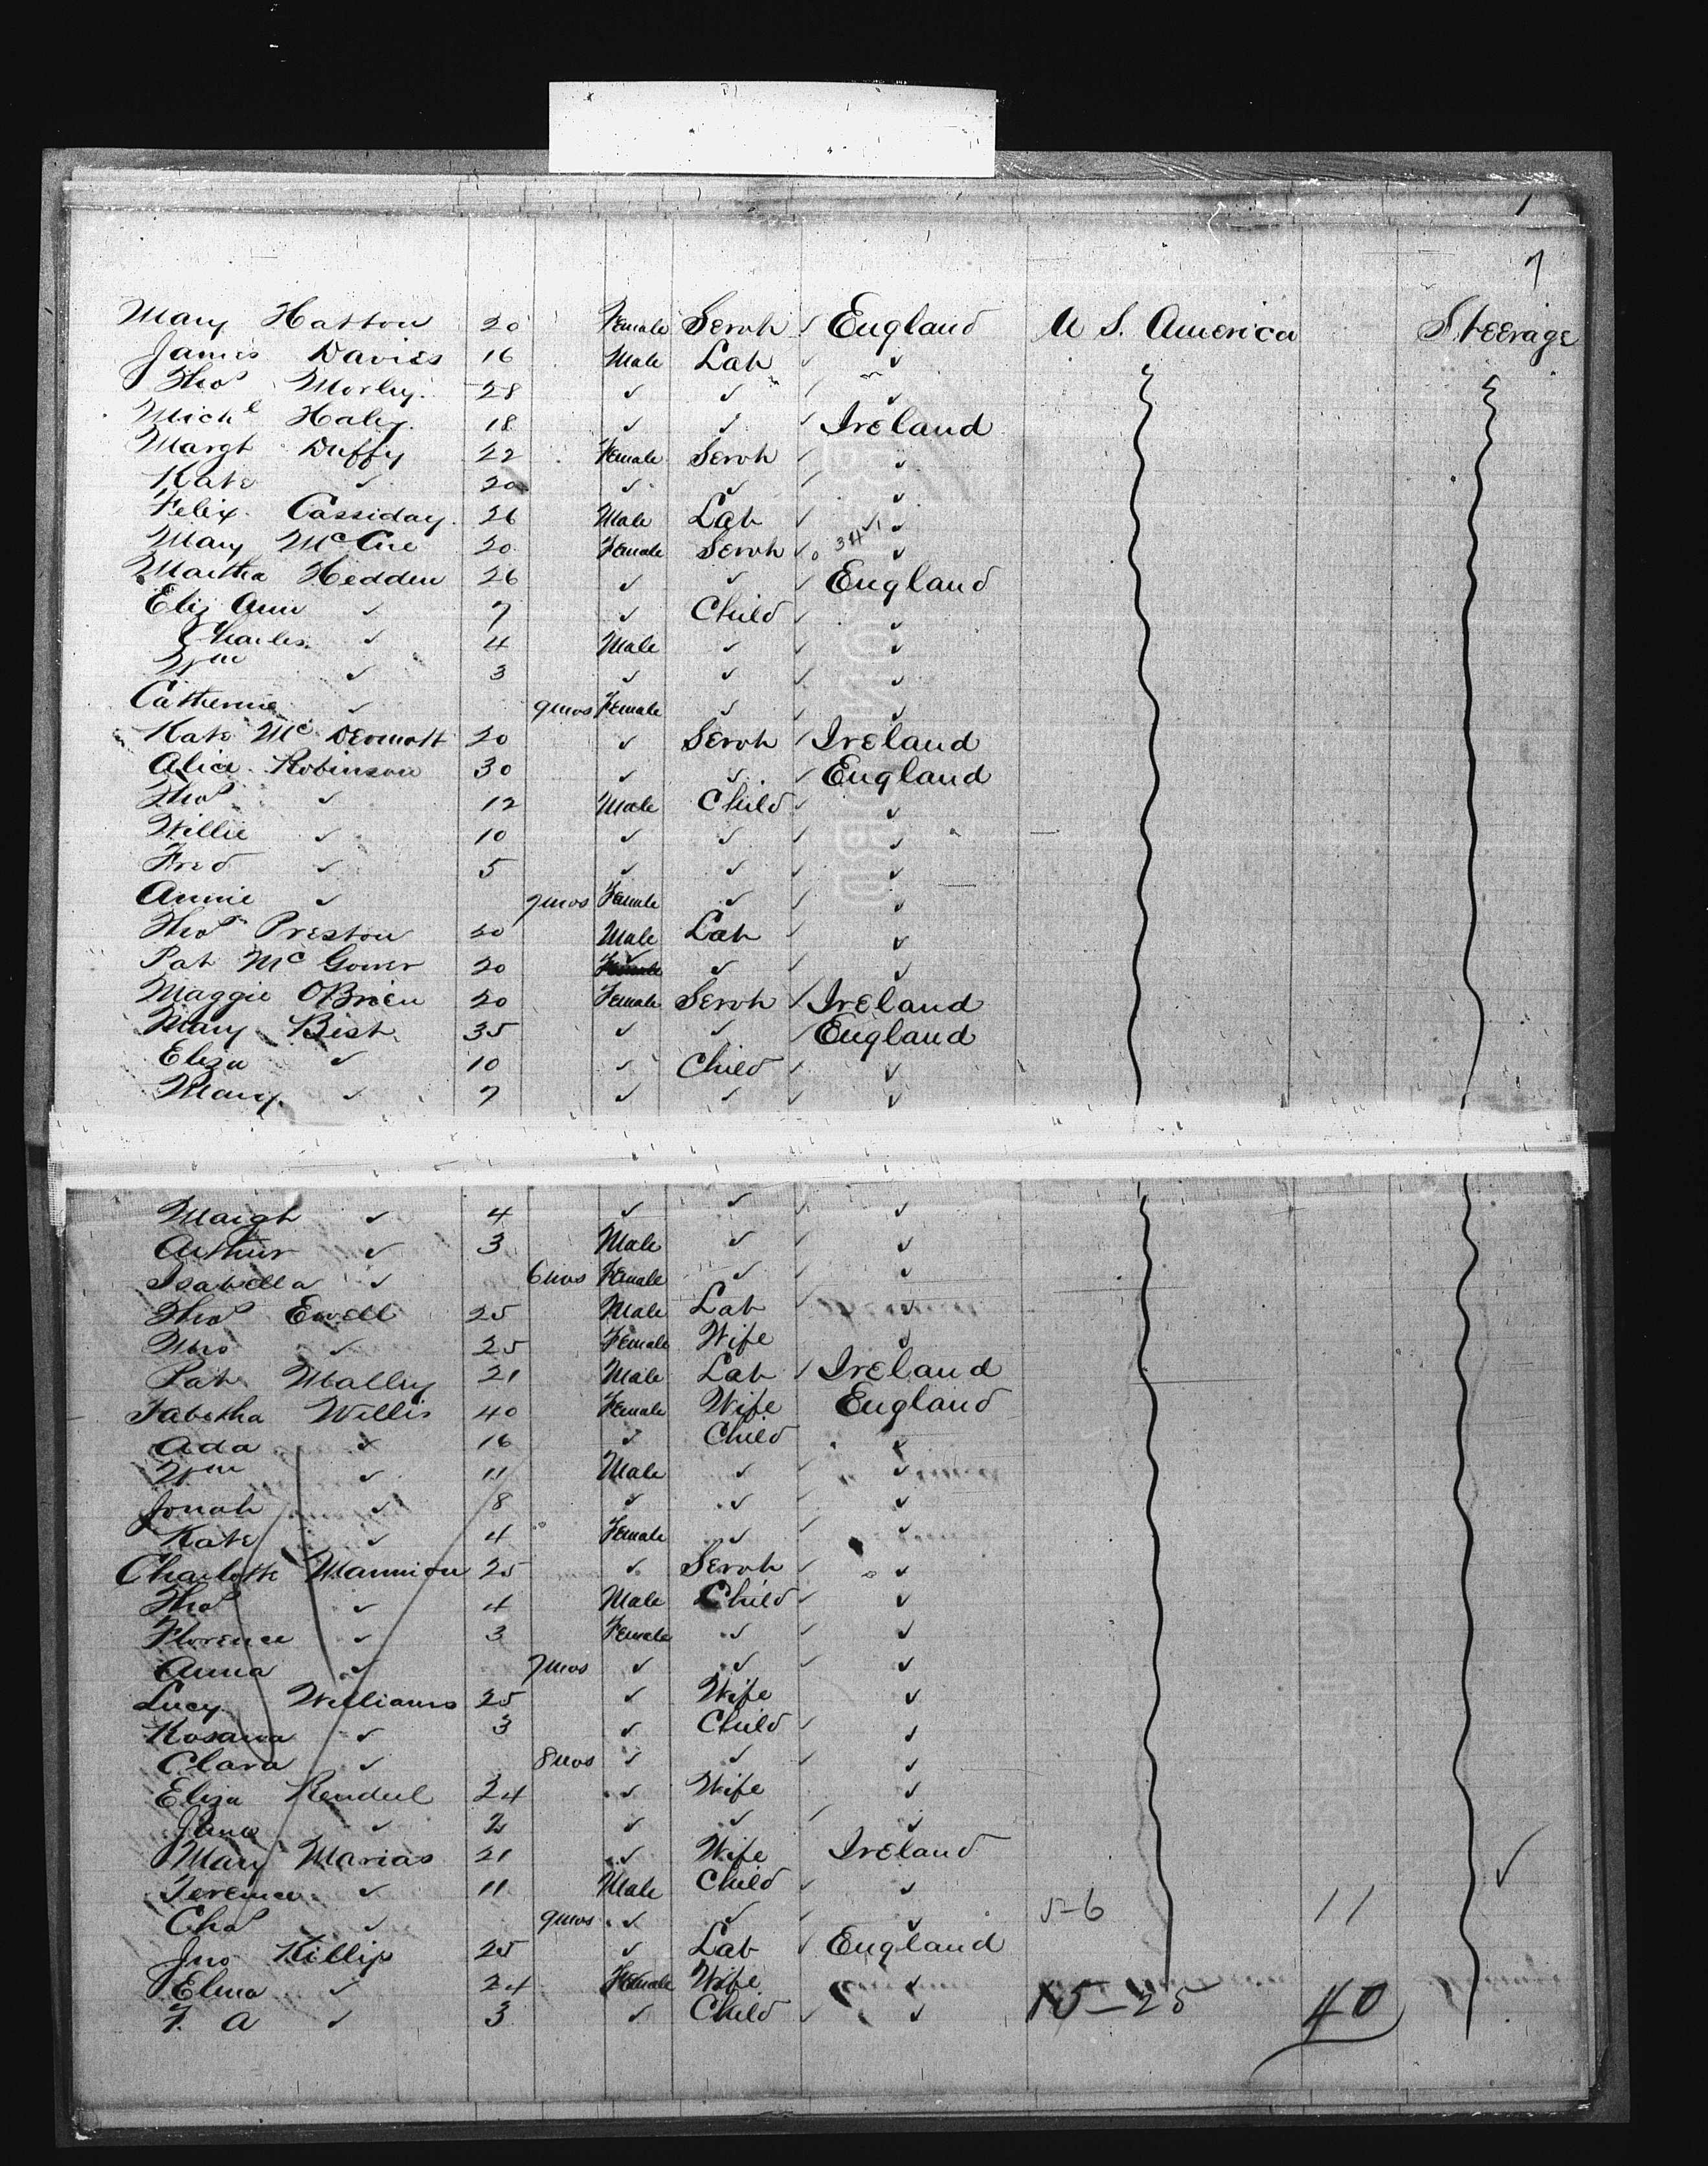 7
Mary Hatton 20 Female Servt ✓ England U S. America Steerage
James Davies 16 Male Lab ✓ ✓
Thos Morley 28 ✓ ✓ ✓ ✓
Michl Haley 18 ✓ ✓ ✓ Ireland
Margt Duffy 22 Female Servt ✓ ✓
Kate ✓ 20 ✓ ✓ ✓ ✓
Felix Cassiday 26 Male Lab ✓ ✓
Mary McCue 20 Female Servt ✓ ✓
Martha Hedden 26 ✓ ✓ ✓ England
Eliz Ann ✓ 7 ✓ Child ✓ ✓
Charles ✓ 4 Male ✓ ✓ ✓
Wm ✓ 3 ✓ ✓ ✓ ✓
Catherine ✓ 9mos Female ✓ ✓ ✓
Kate McDermott 20 ✓ Servt ✓ Ireland
Alice Robinson 30 ✓ ✓ ✓ England
Thos ✓ 12 Male Child ✓ ✓
Willie ✓ 10 ✓ ✓ ✓ ✓
Fred ✓ 5 ✓ ✓ ✓ ✓
Annie ✓ 7mos Female ✓ ✓ ✓
Thos Preston 20 Male Lab ✓ ✓
Pat McGower 20 ✓ ✓ ✓ ✓
Maggie OBrien 20 Female Servt ✓ Ireland
Mary Bist 35 ✓ ✓ ✓ England
Eliza ✓ 10 ✓ Child ✓ ✓
Mary ✓ 7 ✓ ✓ ✓ ✓
Margt ✓ 4 ✓ ✓ ✓ ✓
Arthur ✓ 3 Male ✓ ✓ ✓
Isabella ✓ 6mos Female ✓ ✓ ✓
Thos Ewell 25 Male Lab ✓ ✓
Mrs ✓ 25 Female Wife ✓
Pat Malley 21 Male Lab ✓ Ireland
Tabetha Willis 40 Female Wife England
Ada ✓ 16 ✓ Child ✓
Wm ✓ 11 Male ✓ ✓ ✓
Jonah ✓ 8 ✓ ✓ ✓ ✓
Kate ✓ 4 Female ✓ ✓ ✓
Charlotte Mannion 25 ✓ Servt ✓ ✓
Thos ✓ 4 Male Child ✓ ✓
Florence ✓ 3 Female ✓ ✓ ✓
Anna ✓ 7mos ✓ ✓ ✓ ✓
Lucy Williams 25 ✓ Wife ✓
Rosanna ✓ 3 ✓ Child ✓ ✓
Clara ✓ 8mos ✓ ✓ ✓ ✓
Eliza 24 ✓ Wife ✓
Jane ✓ 2 ✓ ✓ ✓ ✓
Mary Marias 21 ✓ Wife Ireland ✓
Terence ✓ 11 Male Child ✓ ✓
Chas ✓ 9mos ✓ ✓ ✓ ✓ 5-6 11
Jno Killip 25 ✓ Lab ✓ England
Elma ✓ 24 Female Wife ✓
F. A ✓ 3 ✓ Child ✓ ✓ 15-25 40